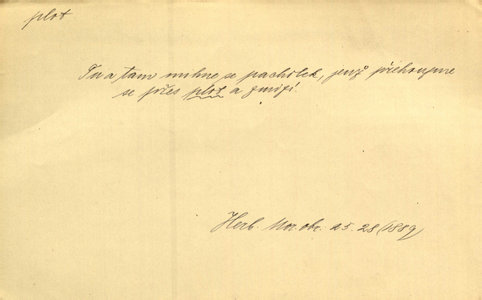 plot
Tu a tam mihne se pacholek, jenž přehoupne
se přes plot a zmizí.
Herb. Mor. obr. 25. 28 (1889)